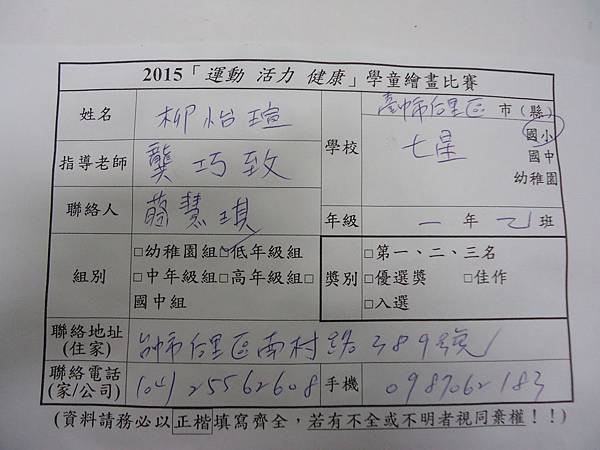 2015「運動 活力 健康」學童繪畫比賽
姓名 柳怡瑄 學校 臺中市后里區 市(縣)
七星 國小
國中
幼稚園
指導老師 龔巧致
聯絡人 蕭慧琪 年級 一 年 乙 班
組別 □幼稚園組□低年級組
□中年級組□高年級組□
國中組
獎別 □第一、二、三名
□優選獎 □佳作
□入選
聯絡地址
(住家) 台中市后里區南村路389號
聯絡電話
(家/公司) (04) 25562608 手機 0987062183
(資料請務必以正楷填寫齊全,若有不全或不明者視同棄權!!)